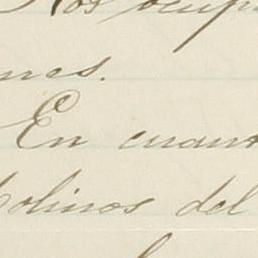 Nos ocup
nes.
En cuant
olinos del